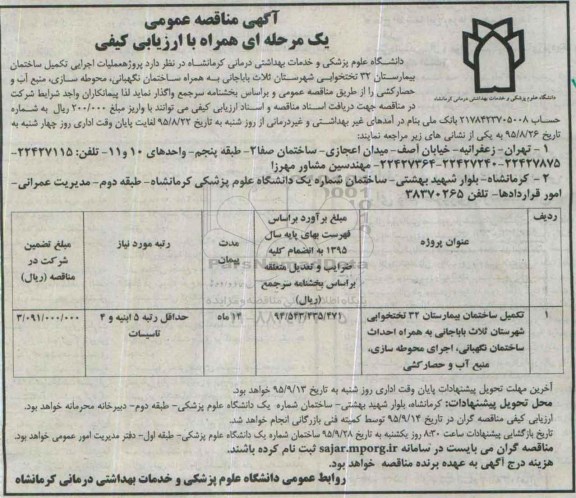 آگهی مناقصه عمومی
یک مرحله ای همراه با ارزیابی کیفی
دانشگاه علوم پزشکی و خدمات بهداشتی درمانی کرمانشاه
دانشگاه علوم پزشکی و خدمات بهداشتی درمانی کرمانشاه در نظر دارد پروژهعملیات اجرایی تکمیل ساختمان
بیمارستان ۳۲ تختخوابی شهرستان ثلاث باباجانی به همراه ساختمان نگهبانی، محوطه سازی، منبع آب و
حصارکشی را از طریق مناقصه عمومی و براساس بخشنامه سرجمع واگذار نماید لذا پیمانکاران واجد شرایط شرکت
در مناقصه جهت دریافت اسناد مناقصه و اسناد ارزیابی کیفی می توانند با واریز مبلغ ۲۰۰/۰۰۰ ریال به شماره
حساب ۲۱۷۸۴۲۳۷۰۵۰۰۸ بانک ملی بنام در آمدهای غیر بهداشتی و غیردرمانی از روز شنبه به تاریخ ۹۵/۸/۲۲ لغایت پایان وقت اداری روز چهار شنبه به
تاریخ ۹۵/۸/۲۶ به یکی از نشانی های زیر مراجعه نمایند:
۱ - تهران- زعفرانیه- خیابان آصف- میدان اعجازی- ساختمان صفا۲- طبقه پنجم- واحدهای ۱۰ و۱۱- تلفن: ۲۲۴۲۷۱۱۵-
۲۲۴۲۷۸۷۵-۲۲۴۲۷۲۴۰-۲۲۴۲۷۳۶۴- مهندسین مشاور مهرزا
۲ - کرمانشاه- بلوار شهید بهشتی- ساختمان شماره یک دانشگاه علوم پزشکی کرمانشاه- طبقه دوم- مدیریت عمرانی-
امور قراردادها- تلفن ۳۸۳۷۰۲۶۵
ردیف
عنوان پروژه
مبلغ برآورد براساس
فهرست بهای پایه سال
۱۳۹۵ به انضمام کلیه
ضرایب و تعدیل متعلقه
براساس بخشنامه سرجمع
(ریال)
مدت
پیمان
رتبه مورد نیاز
مبلغ تضمین
شرکت در
مناقصه (ریال)
۱
تکمیل ساختمان بیمارستان ۳۲ تختخوابی
شهرستان ثلاث باباجانی به همراه احداث
ساختمان نگهبانی، اجرای محوطه سازی،
منبع آب و حصارکشی
۹۴/۵۴۳/۲۳۵/۴۷۱
۱۴ ماه
حداقل رتبه ۵ ابنیه و ۴
تاسیسات
۳/۰۹۱/۰۰۰/۰۰۰
آخرین مهلت تحویل پیشنهادات پایان وقت اداری روز شنبه به تاریخ ۹۵/۹/۱۳ خواهد بود.
محل تحویل پیشنهادات: کرمانشاه، بلوار شهید بهشتی- ساختمان شماره یک دانشگاه علوم پزشکی- طبقه دوم- دبیرخانه محرمانه خواهد بود.
ارزیابی کیفی مناقصه گران در تاریخ ۹۵/۹/۱۴ توسط کمیته فنی بازرگانی انجام خواهد شد.
تاریخ بازگشایی پیشنهادات ساعت ۸:۳۰ روز یکشنبه به تاریخ ۹۵/۹/۲۸ ساختمان شماره یک دانشگاه علوم پزشکی- طبقه اول- دفتر مدیریت امور عمومی خواهد بود.
مناقصه گران می بایست در سامانه sajar.mporg.ir ثبت نام کرده باشند.
هزینه درج آگهی به عهده برنده مناقصه خواهد بود.
روابط عمومی دانشگاه علوم پزشکی و خدمات بهداشتی درمانی کرمانشاه